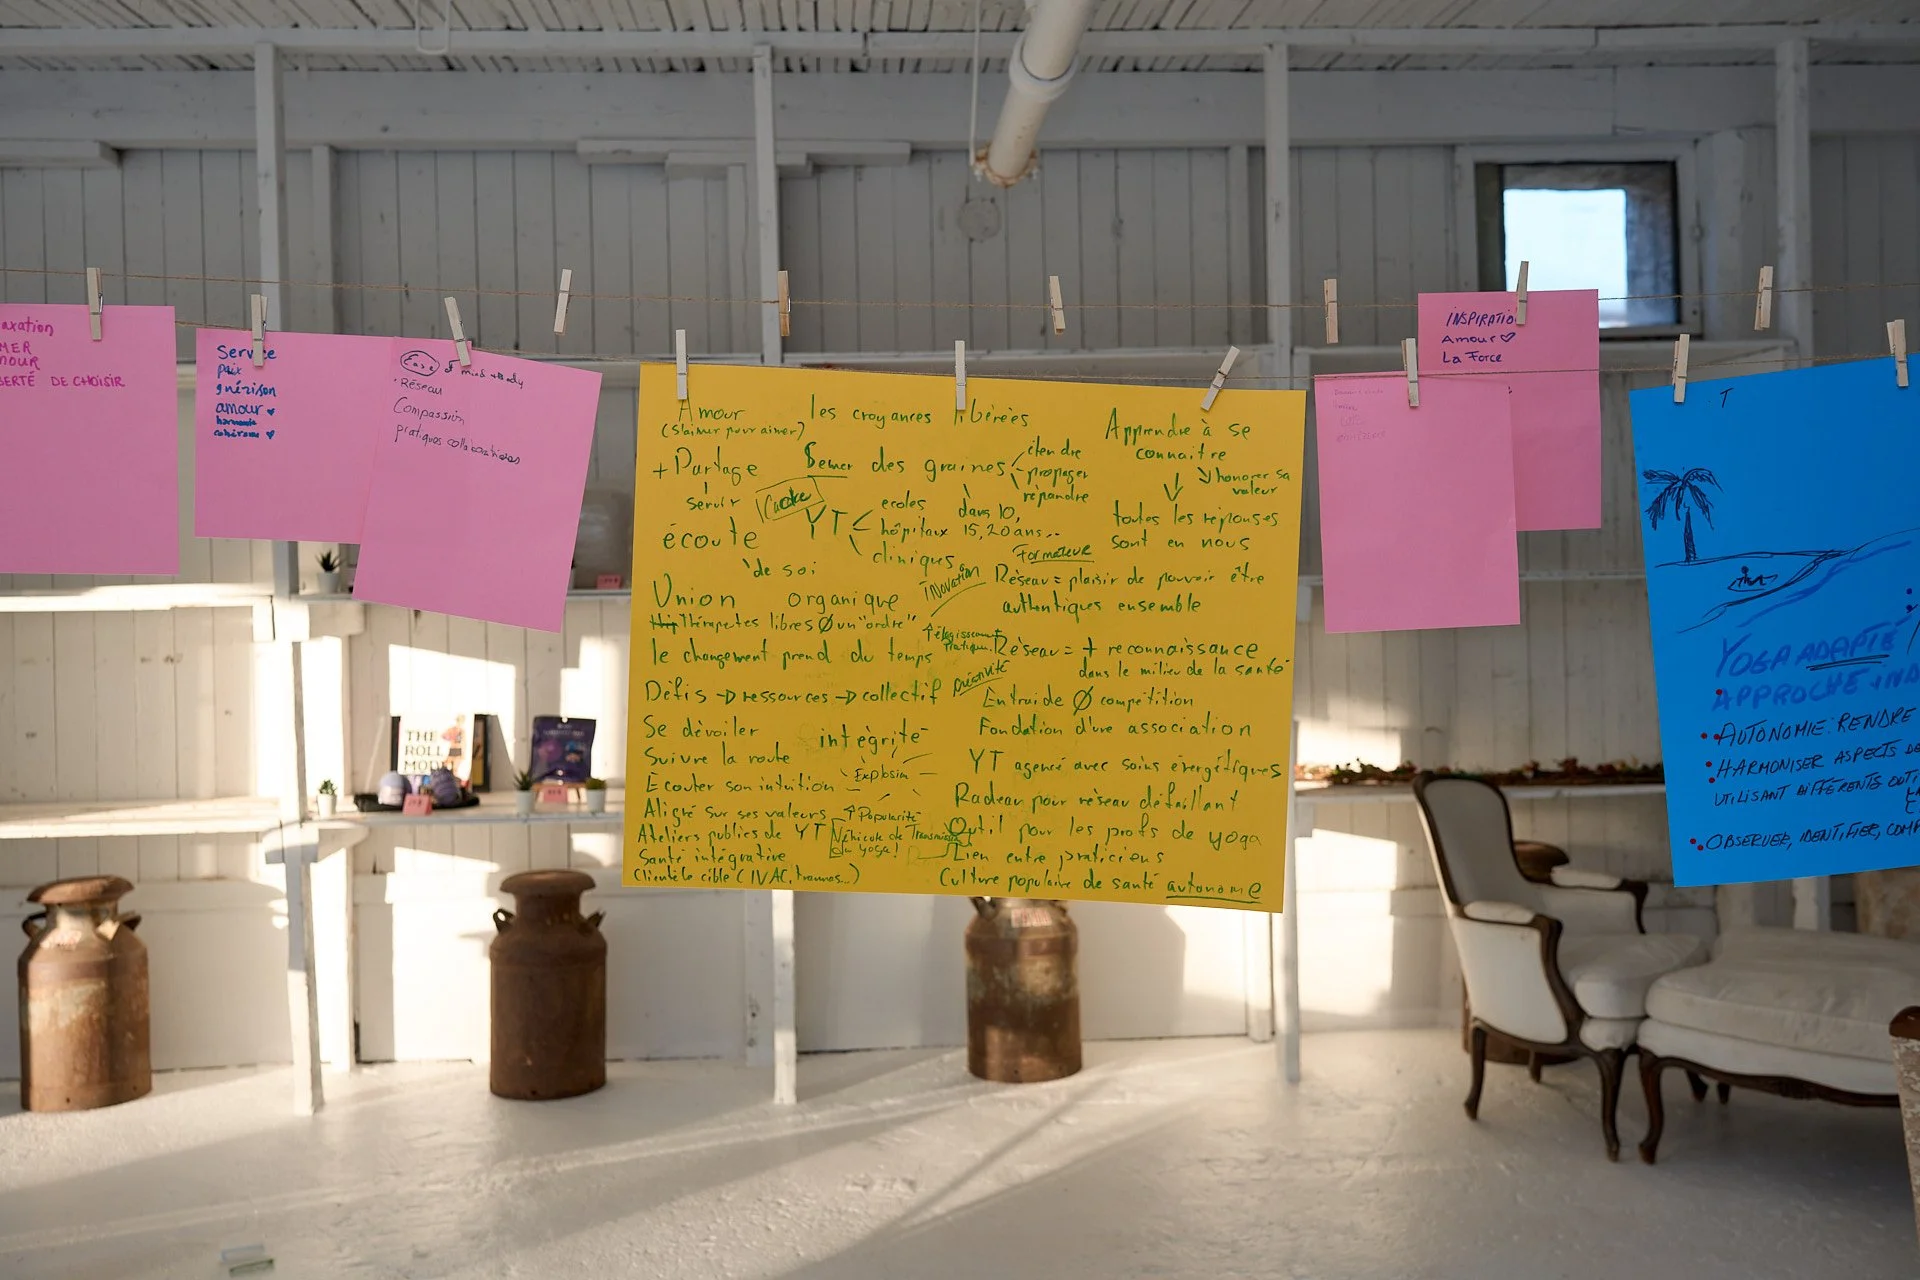 axation
MER
MOUR
BERTÉ DE CHOISIR
Service
paix
guérison
amour
harmonie
cohérence
Ease of mind + body
Réseau
Compassion
pratiques collaboratives
Amour
(s'aimer pour aimer)
+ Partage
servir
écoute
de soi
les croyances libérées
Semer des graines
étendre
propager
répandre
dans 10,
15, 20 ans...
YT
ecoles
hôpitaux
cliniques
Apprendre à se
connaître
honorer sa
valeur
toutes les réponses
sont en nous
Formateur
inovation
Union organique
Thérapetes libres Ø un "ordre"
le changement prend du temps
Défis → ressources → collectif
créativité
Se dévoiler
intégrité
Suivre la route
Écouter son intuition
Explosion
Aligné sur ses valeurs
↑ Popularité
Ateliers publics de YT
Véhicule de Transmission
du yoga!
Santé intégrative
Clientèle cible (IVAC, traumas...)
Réseau = plaisir de pouvoir être
authentiques ensemble
Réseau = + reconnaissance
dans le milieu de la santé
Entraide Ø compétition
Fondation d'une association
YT agencé avec soins énergétiques
Radeau pour réseau défaillant
Outil pour les profs de yoga
Lien entre praticiens
Culture populaire de santé autonome
INSPIRATIO
Amour
La Force
YOGA ADAPTÉ
APPROCHE IND
• AUTONOMIE: RENDRE
• HARMONISER ASPECTS DE
UTILISANT DIFFÉRENTS OUTI
• OBSERVER, IDENTIFIER, COMP
THE
ROLL
MODEL